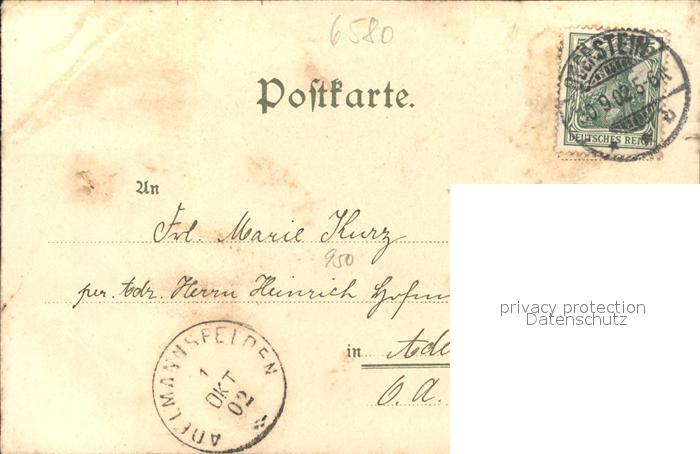 6580
Postkarte.
5
DEUTSCHES REICH
9.02.5-6N
An
Frl. Marie Kurz
950
per. Adr. Herrn Heinrich Hofm
in Ade
O. A.
ADELMANNSFELDEN
1
OKT
02
privacy protection
Datenschutz